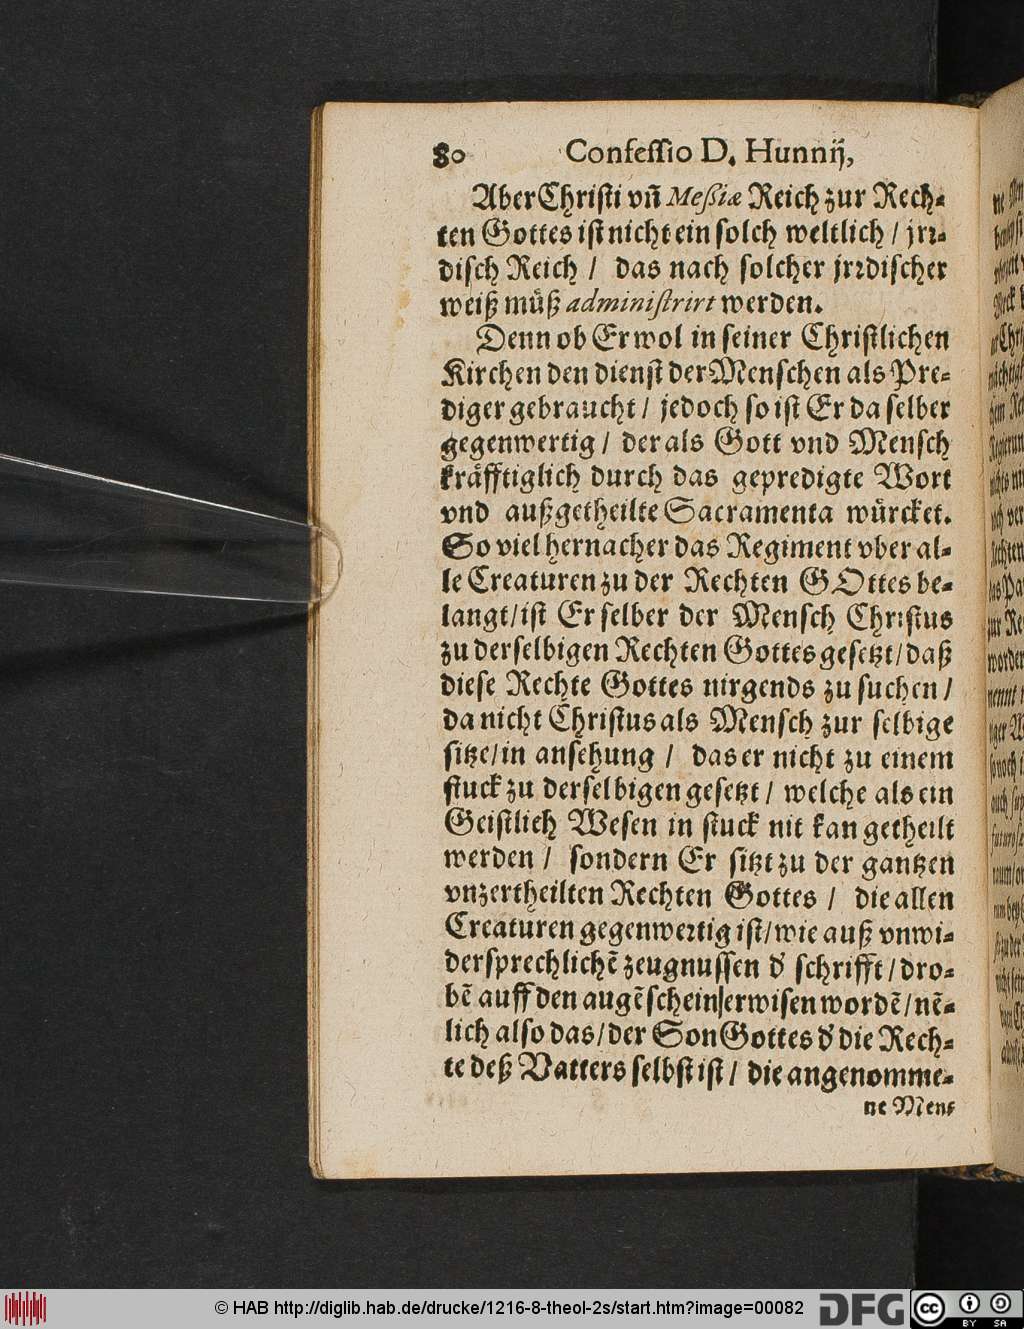 80 Confessio D. Hunnij,
Aber Christi vñ Meßiæ Reich zur Rech-
ten Gottes ist nicht ein solch weltlich / jrr-
disch Reich / das nach solcher jrrdischer
weiß müß administrirt werden.
Denn ob Er wol in seiner Christlichen
Kirchen den dienst der Menschen als Pre-
diger gebraucht / jedoch so ist Er da selber
gegenwertig / der als Gott vnd Mensch
kräfftiglich durch das gepredigte Wort
vnd außgetheilte Sacramenta würcket.
So viel hernacher das Regiment vber al-
le Creaturen zu der Rechten GOttes be-
langt / ist Er selber der Mensch Christus
zu derselbigen Rechten Gottes gesetzt / daß
diese Rechte Gottes nirgends zu suchen /
da nicht Christus als Mensch zur selbige
sitze / in ansehung / das er nicht zu einem
stuck zu derselbigen gesetzt / welche als ein
Geistlich Wesen in stuck nit kan getheilt
werden / sondern Er sitzt zu der gantzen
vnzertheilten Rechten Gottes / die allen
Creaturen gegenwertig ist / wie auß vnwi-
dersprechlichē zeugnussen d' schrifft / dro-
bē auff den augēschein erwisen wordē / nē-
lich also das / der Son Gottes d' die Rech-
te deß Vatters selbst ist / die angenomme-
ne Mens
© HAB http://diglib.hab.de/drucke/1216-8-theol-2s/start.htm?image=00082
DFG
cc BY SA